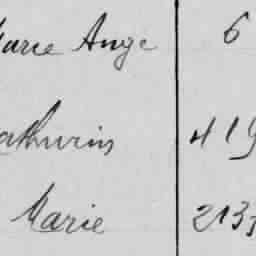 Marie Ange 6
Mathurin 419
Marie 213